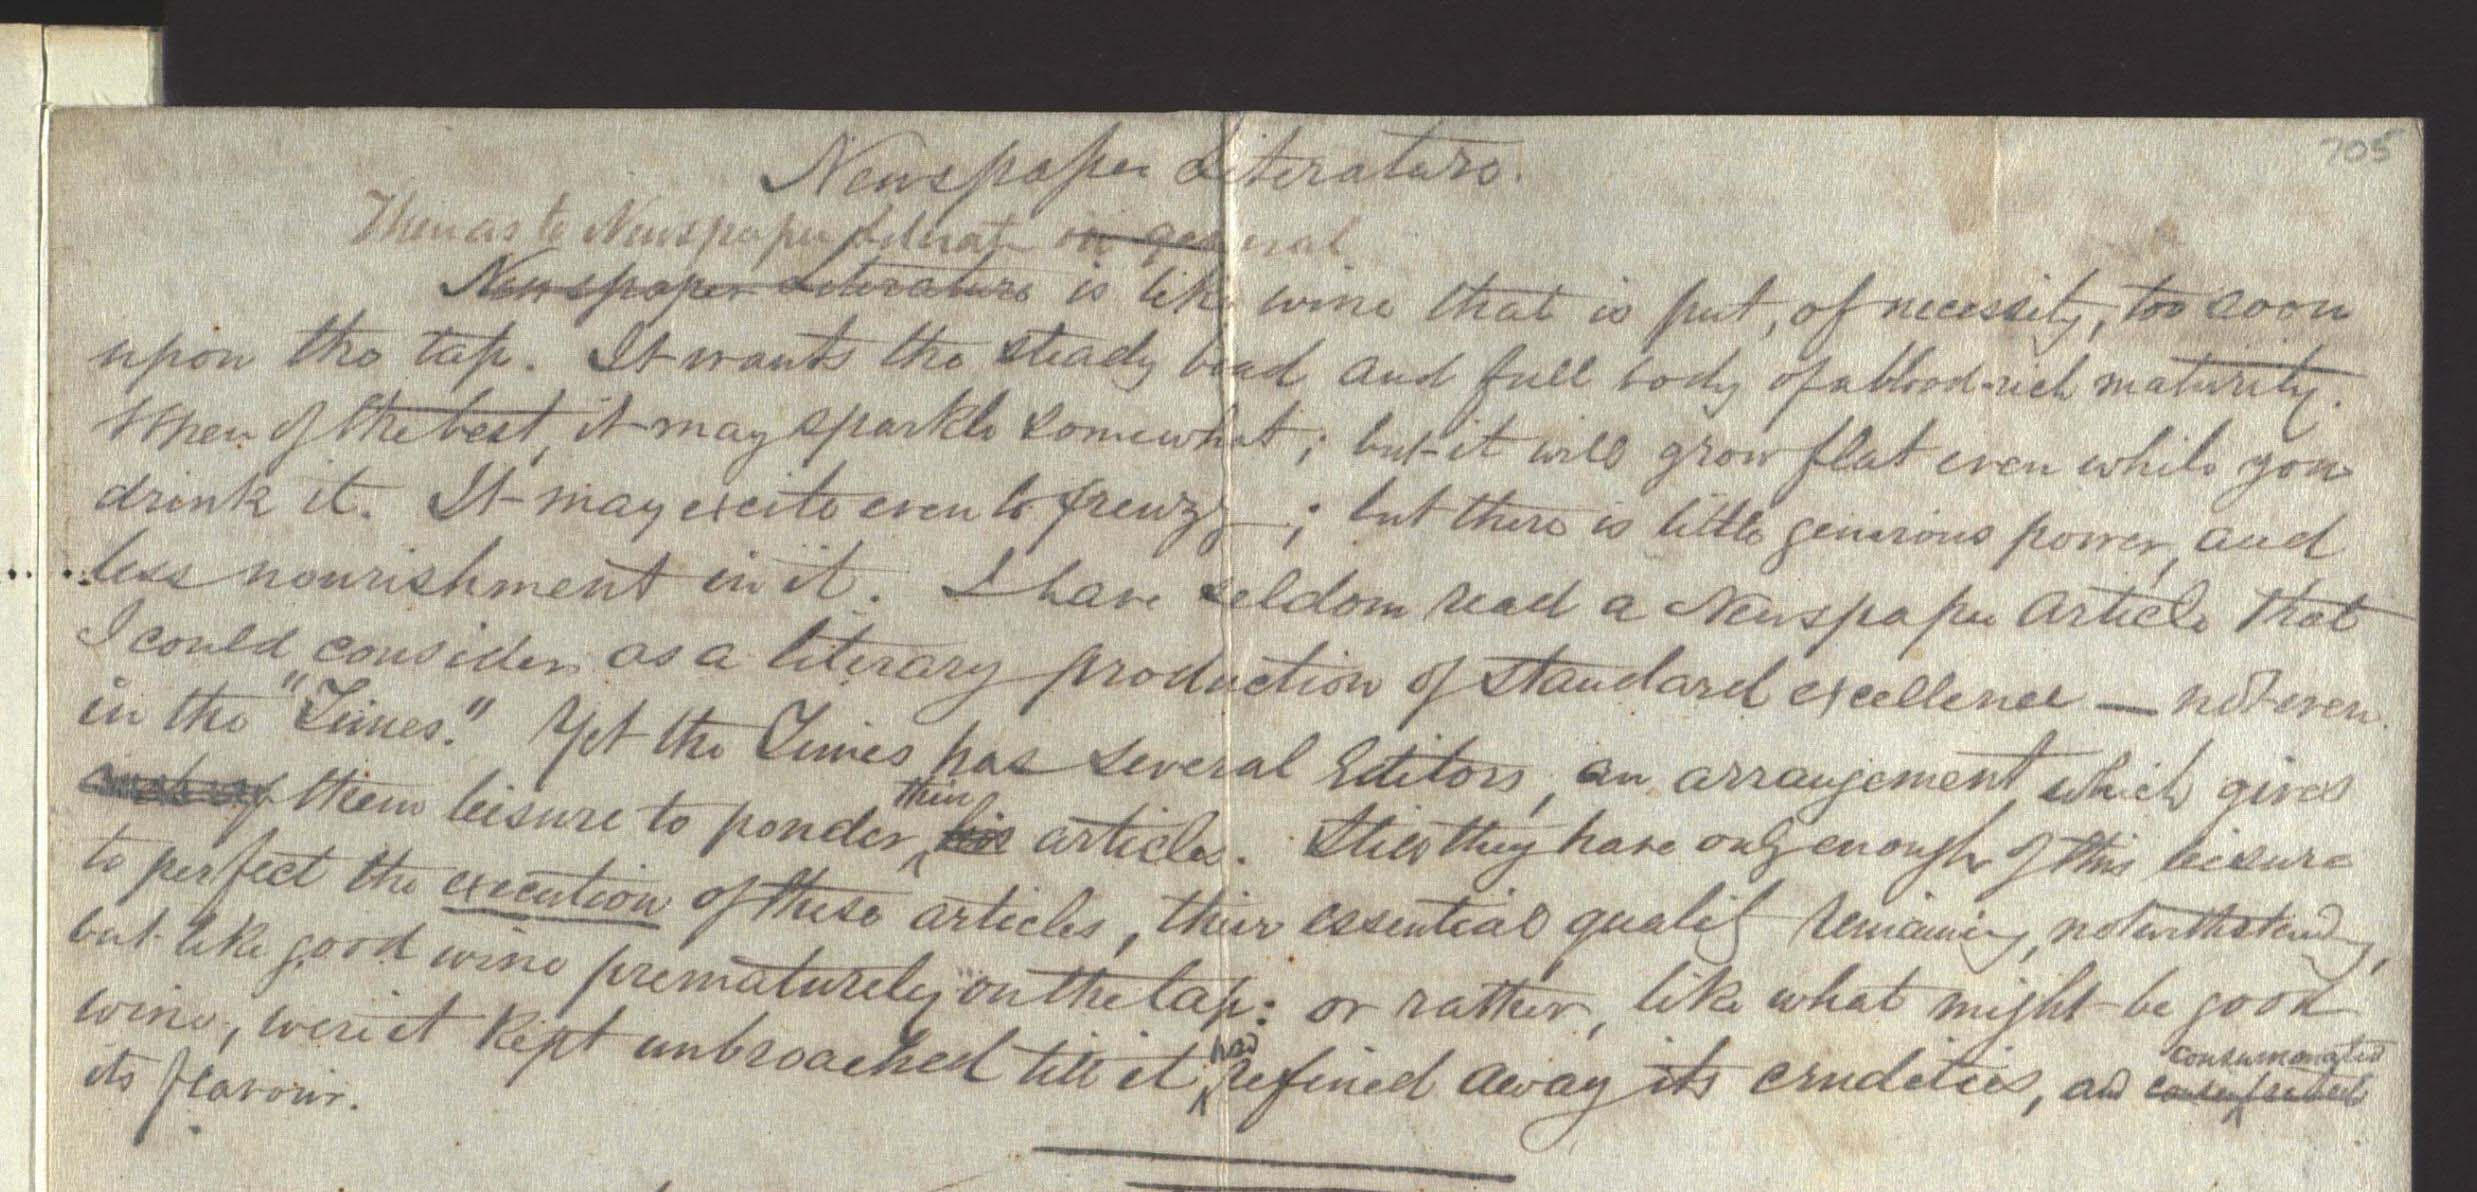 705
Newspaper Literature.
Then as to Newspaper Literat in general
Newspaper Literature is like wine that is put, of necessity, too soon
upon the tap. It wants the steady bead and full body of a blood-rich maturity.
When of the best, it may sparkle somewhat; but it will grow flat even while you
drink it. It may excite even to frenzy; but there is little generous power, and
less nourishment in it. I have seldom read a Newspaper Article that
I could consider as a literary production of standard excellence — not even
in the "Times." Yet the Times has several Editors, an arrangement which gives
them leisure to ponder
their
his articles. Still they have only enough of this leisure
to perfect the execution of these articles, their essential quality remaining, notwithstanding,
but like good wine prematurely on the tap: or rather, like what might be good
wine, were it kept unbroached till it
had
refined away its crudities, and
consummated
its flavour.